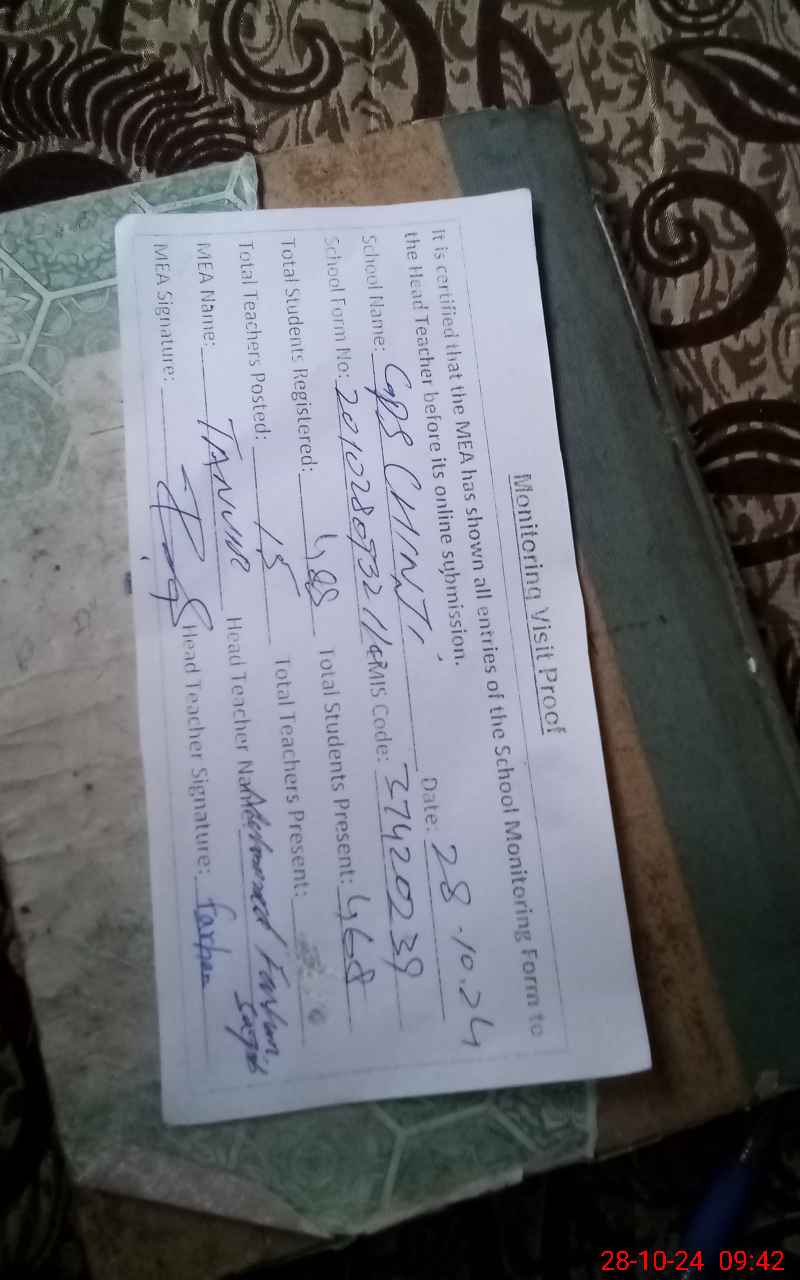 Monitoring Visit Proof
It is certified that the MEA has shown all entries of the School Monitoring Form to
the Head Teacher before its online submission.
School Name: GPS CHINTI Date: 28.10.24
School Form No: EMIS Code: 37420239
Total Students Registered: 488 Total Students Present: 468
Total Teachers Posted: 15 Total Teachers Present:
MEA Name: TANVIR Head Teacher Name: Farhan
MEA Signature: Head Teacher Signature: Farhan
28-10-24 09:42